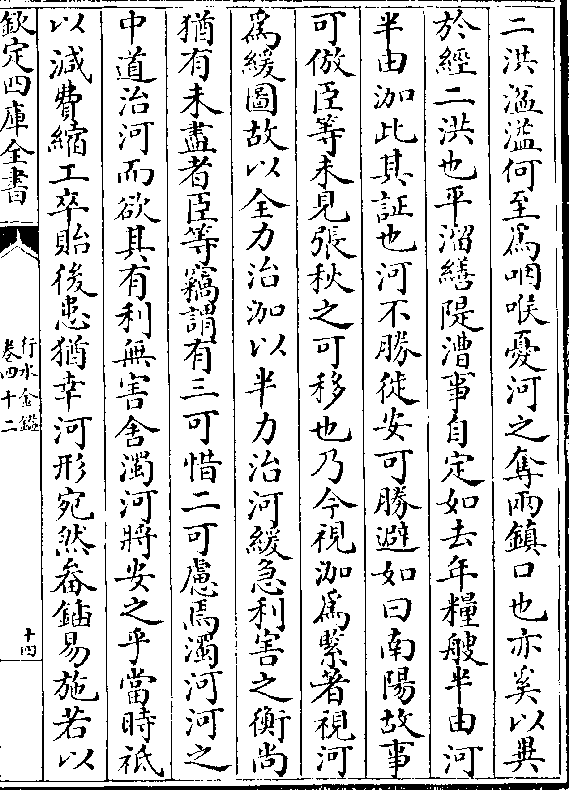 二洪滋濫何至為咽喉憂河之奪兩鎮口也亦奚以異
於經二洪也平溜繕隄漕事自定如去年糧艘半由河
半由泇此其証也河不勝徙安可勝避如曰南陽故事
可倣臣等未見張秋之可移也乃今視泇為緊著視河
為緩圖故以全力治泇以半力治河緩急利害之衡尚
猶有未盡者臣等竊謂有三可惜二可慮焉濁河河之
中道治河而欲其有利無害舍濁河將安之乎當時祗
以減費縮工卒貽後患猶幸河形宛然畚鍤易施若以
欽定四庫全書
行水金鑑
卷四十二
十四